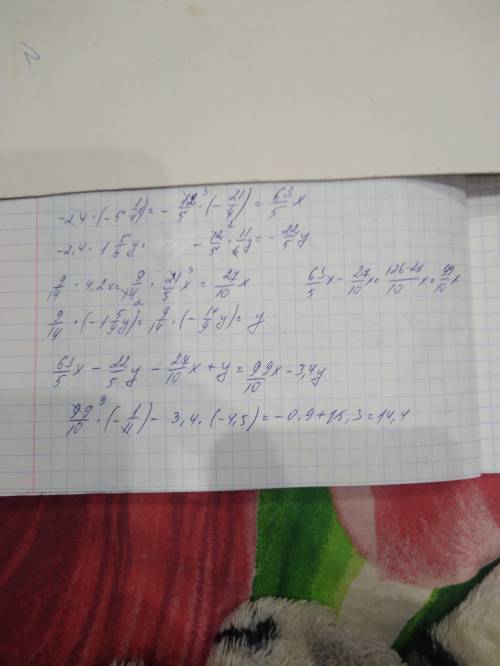 -2,4·(-5 1/4)= -12/5·(-21/4)=63/5x
-2,4·1 5/6y= -12/5·11/6y=-22/5y
9/14·4,2x=9/14·21/5x=27/10x 63/5x-27/10x=126-27/10x=99/10x
9/14·(-1 5/9y)=9/14·(-14/9y)=y
63/5x-22/5y-27/10x+y=99/10x-3,4y
99/10·(-1/11)-3,4·(-4,5)=-0,9+15,3=14,4